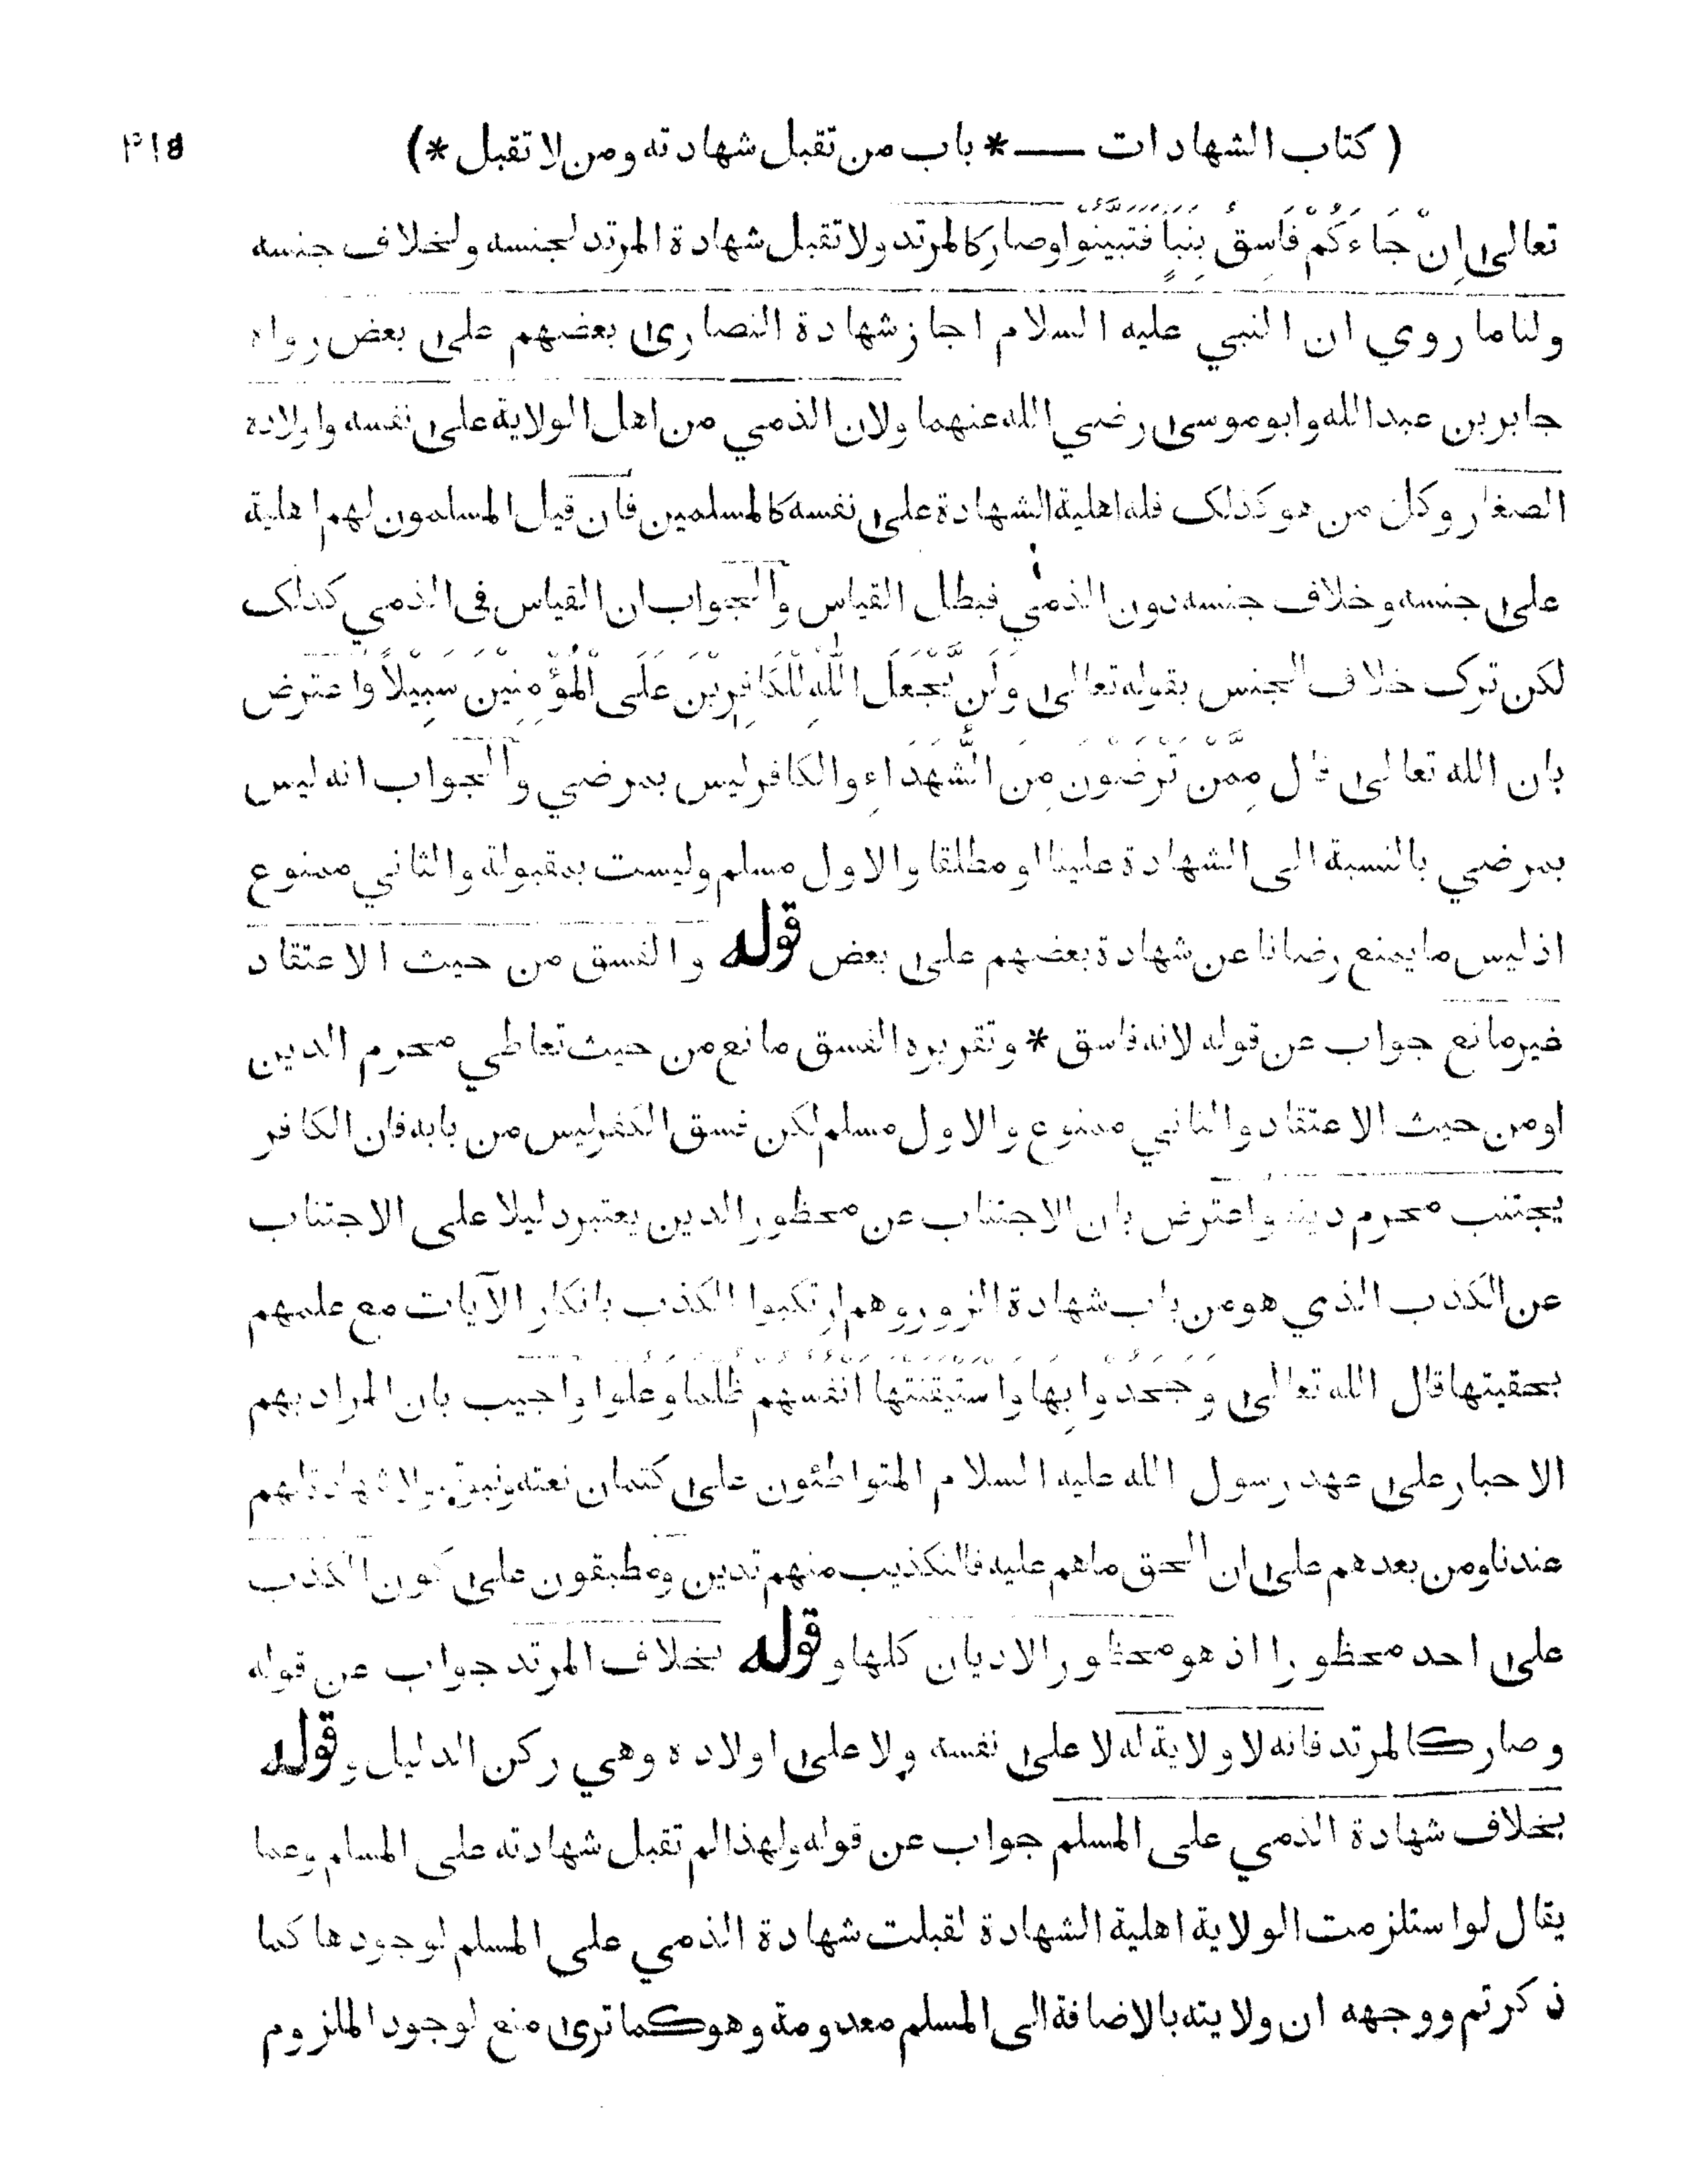 ( كتاب الشهادات ــــ * باب من تقبل شهادته ومن لا تقبل * )
تعالى إِنْ جَاءَكُمْ فَاسِقٌ بِنَبَأٍ فَتَبَيَّنُوا وصار كالمرتد ولا تقبل شهادة المرتد لجنسه ولخلاف جنسه
ولنا ما روي ان النبي عليه السلام اجاز شهادة النصارى بعضهم على بعض رواه
جابر بن عبد الله وابو موسى رضي الله عنهما ولان الذمي من اهل الولاية على نفسه واولاده
الصغار وكل من هو كذلك فله اهلية الشهادة على نفسه كالمسلمين فان قيل المسلمون لهم اهلية
على جنسه وخلاف جنسه دون الذمي فبطل القياس والجواب ان القياس في الذمي كذلك
لكن ترك خلاف الجنس بقوله تعالى وَلَنْ يَّجْعَلَ اللهُ لِلْكَافِرِيْنَ عَلَى الْمُؤْمِنِيْنَ سَبِيْلاً واعترض
بان الله تعالى قال مِمَّنْ تَرْضَوْنَ مِنَ الشُّهَدَاءِ والكافر ليس بمرضي والجواب انه ليس
بمرضي بالنسبة الى الشهادة علينا او مطلقا والاول مسلم وليست بمقبولة والثاني ممنوع
اذ ليس ما يمنع رضانا عن شهادة بعضهم على بعض قوله والفسق من حيث الاعتقاد
غير مانع جواب عن قوله لانه فاسق * وتقريره الفسق مانع من حيث تعاطي محرم الدين
او من حيث الاعتقاد والثاني ممنوع والاول مسلم لكن فسق الكفر ليس من بابه فان الكافر
يجتنب محرم دينه واعترض بان الاجتناب عن محظور الدين يعتبر دليلا على الاجتناب
عن الكذب الذي هو من باب شهادة الزور وهم ارتكبوا الكذب بانكار الآيات مع علمهم
بحقيتها قال الله تعالى وَجَحَدُوا بِهَا وَاسْتَيْقَنَتْهَا اَنْفُسُهُمْ ظُلْمًا وَعُلُوًّا واجيب بان المراد بهم
الاحبار على عهد رسول الله عليه السلام المتواطئون على كتمان نعته ونبوته ولا شهادة لهم
عندنا ومن بعدهم على ان الحق ماهم عليه فالتكذيب منهم تدين ومطبقون على كون الكذب
على احد محظورا اذ هو محظور الاديان كلها وقوله بخلاف المرتد جواب عن قوله
وصار كالمرتد فانه لا ولاية له لا على نفسه ولا على اولاده وهي ركن الدليل وقوله
بخلاف شهادة الذمي على المسلم جواب عن قوله ولهذا لم تقبل شهادته على المسلم وعما
يقال لو استلزمت الولاية اهلية الشهادة لقبلت شهادة الذمي على المسلم لوجودها كما
ذكرتم ووجهه ان ولايته بالاضافة الى المسلم معدومة وهو كما ترى منع لوجود الملزوم